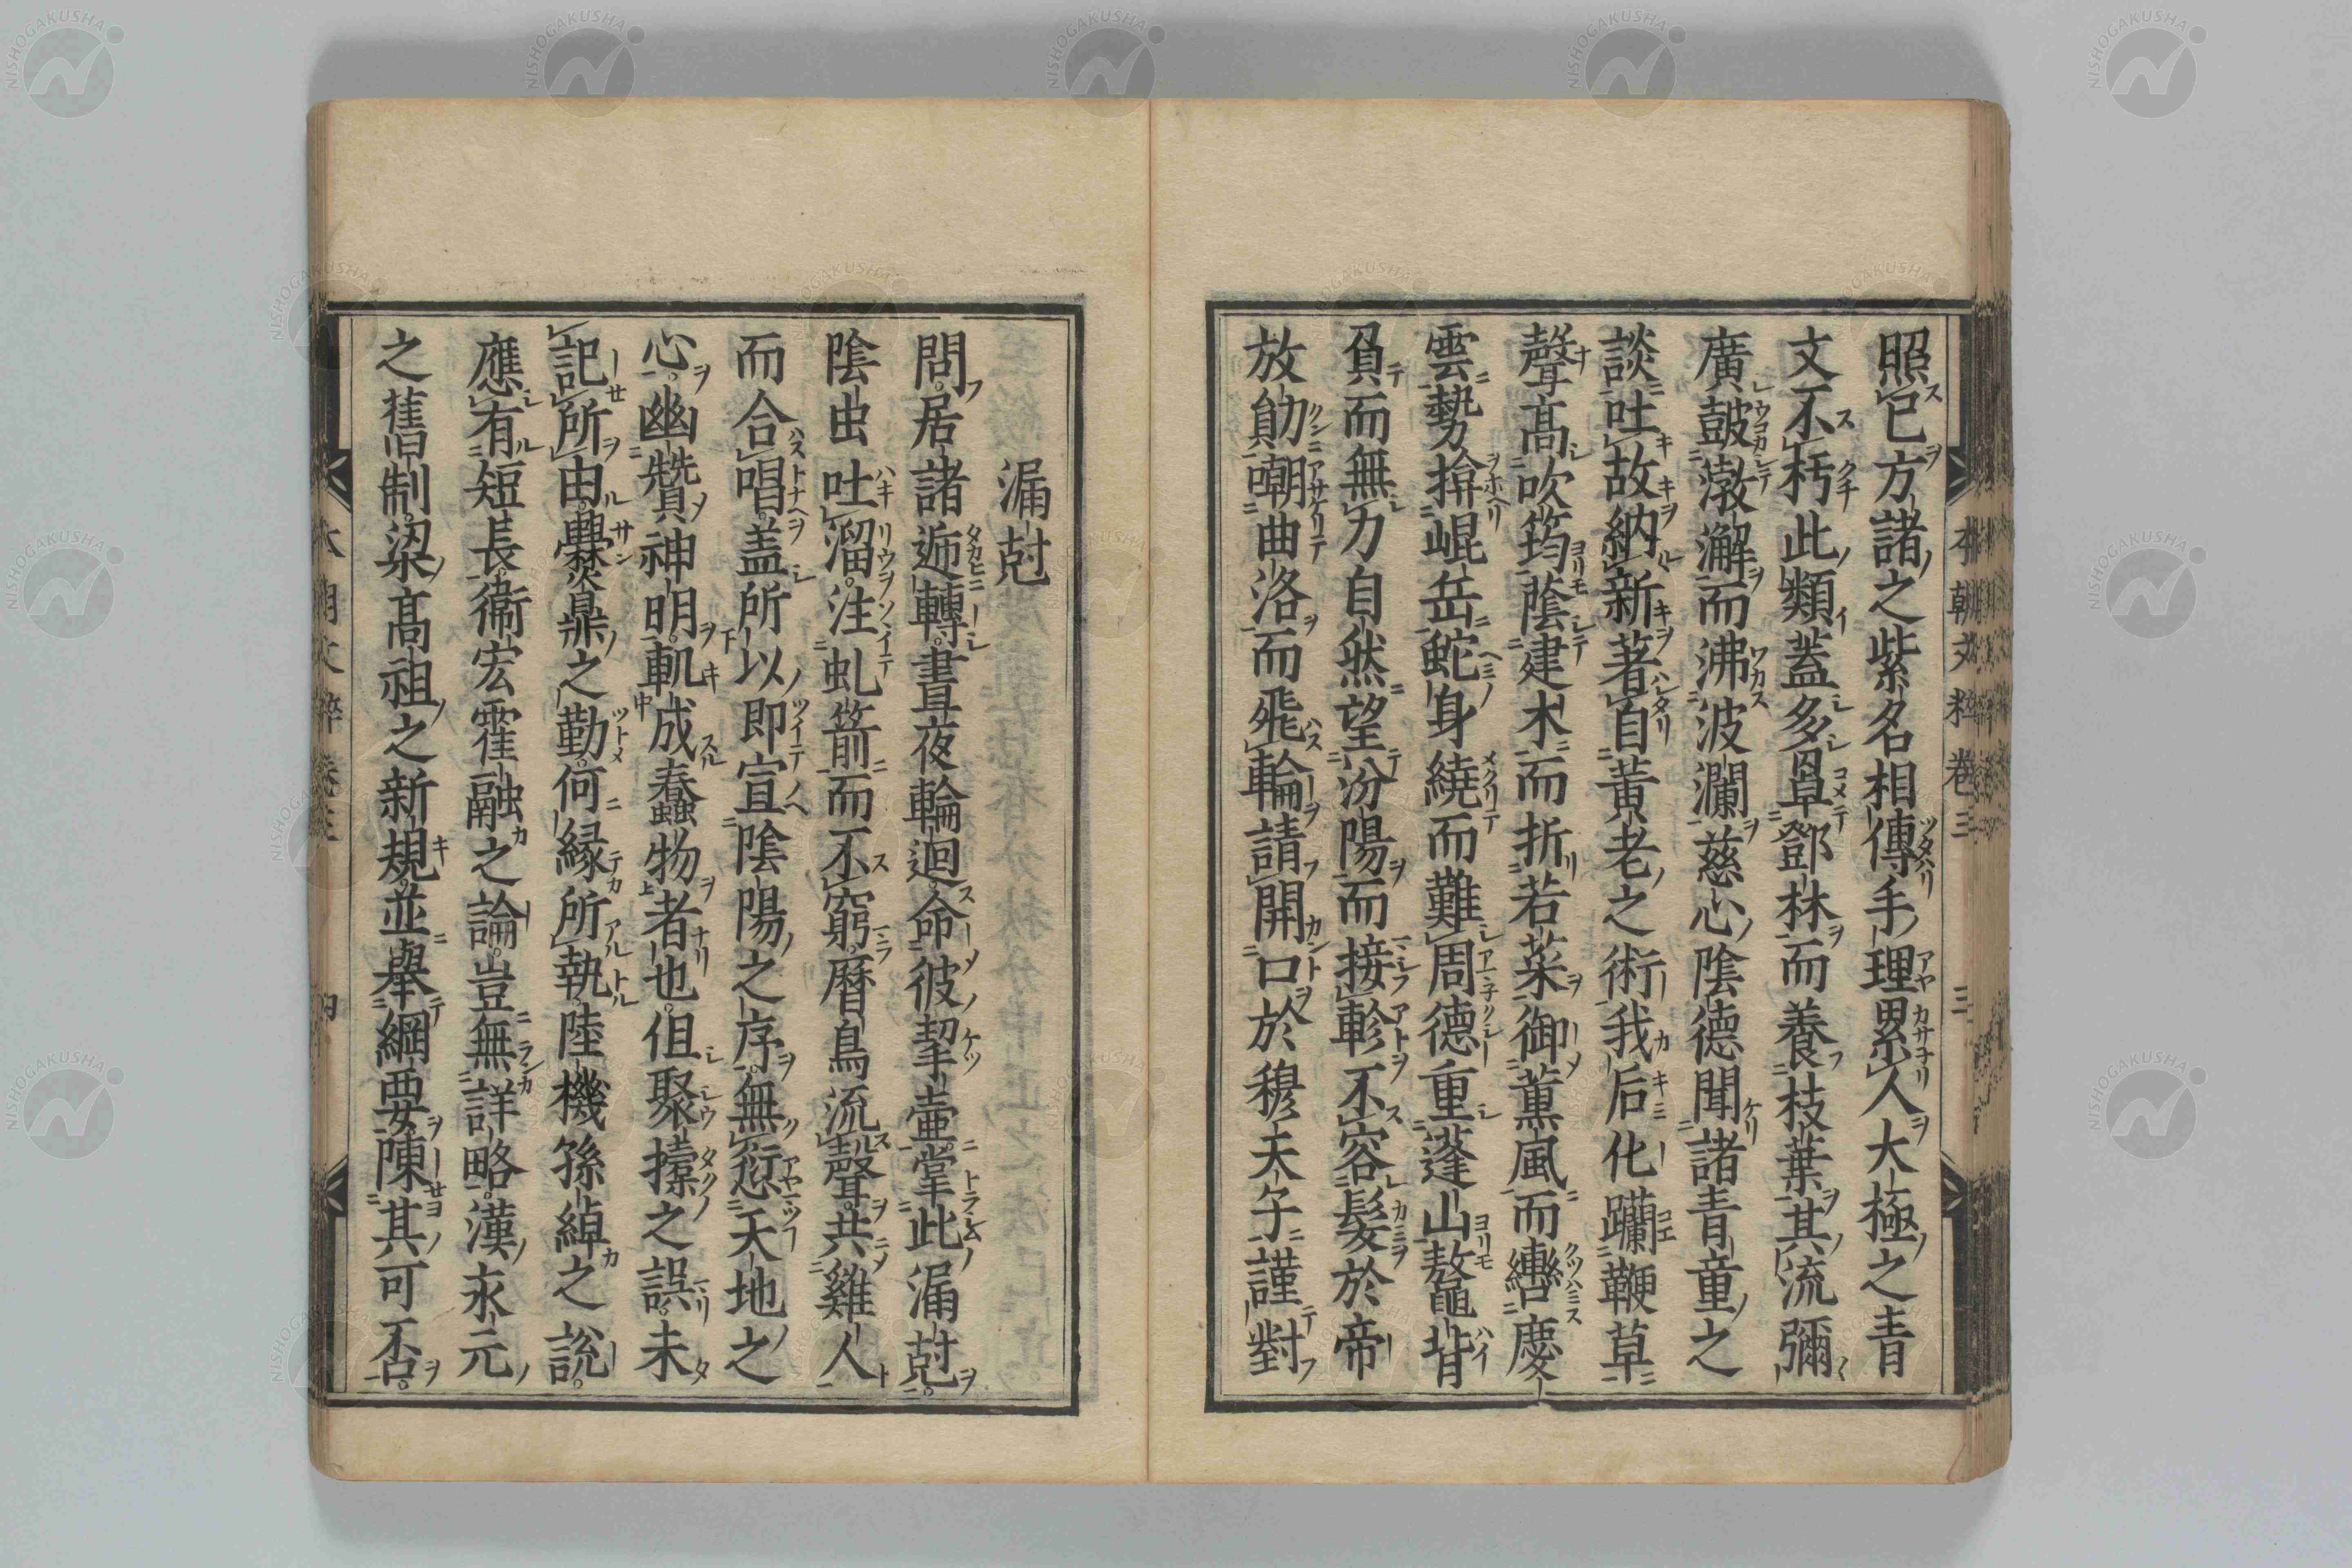 照已方諸之紫名相傳手理累人大極之青
文不朽此類蓋多覃鄧林而養枝葉其流彌
廣鼓澥而沸波瀾慈心陰德聞諸青童之
談吐故納新著自黃老之術我后化躪鞭草
聲高吹筠陰建木而折若菜御薫風而轡慶
雲勢揜崐岳蛇身繞而難周德重蓬山鼇背
負而無力自然望汾陽而接軫不容髮於帝
放勛嘲曲洛而飛輪請開口於穆夫子謹對
漏尅
問居諸遞轉晝夜輪迴命彼挈壷掌此漏尅
陰虫吐溜注虬箭而不窮曆鳥流聲共雞人
而合唱盖所以即宣陰陽之序無愆天地之
心幽贊神明軌成蠢物者也但聚攈之誤未
記所由爨鼎之勤何縁所執陸機孫綽之說
應有短長衞宏霍融之論豈無詳略漢永元
之舊制梁高祖之新規並舉綱要陳其可否
本朝文粹 卷三 三
NISHOGAKUSHA